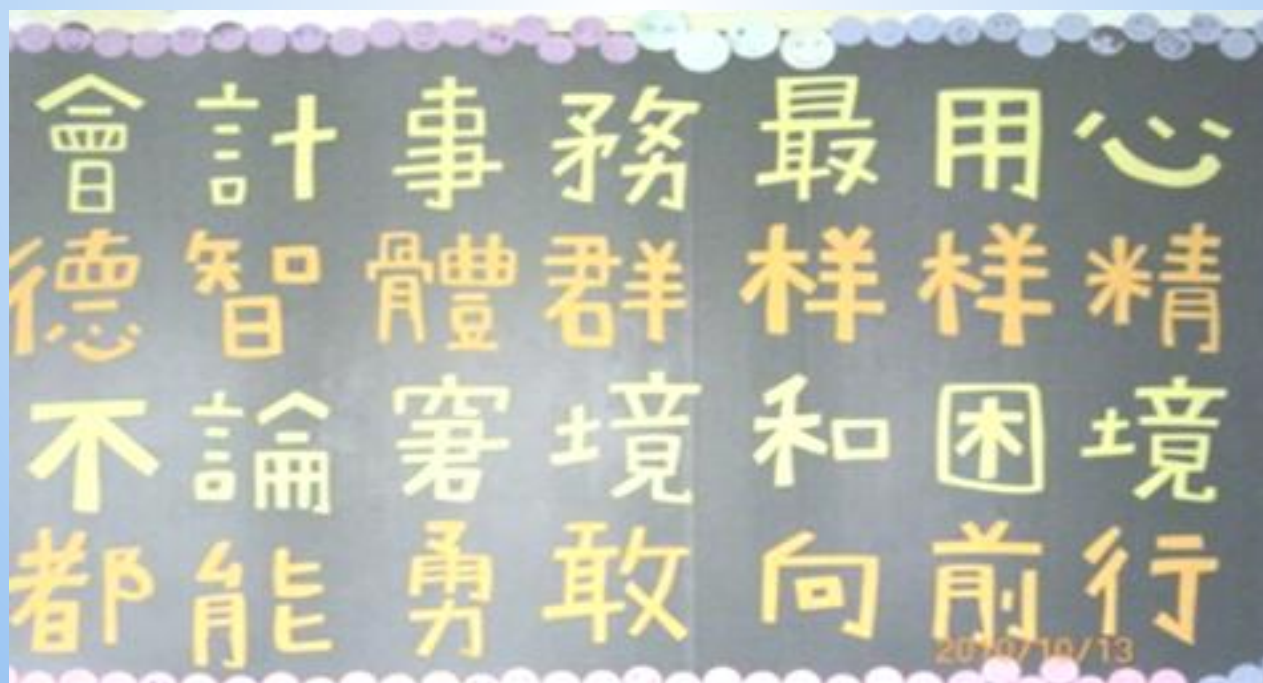 會計事務最用心
德智體群样样精
不論窘境和困境
都能勇敢向前行
2010/10/13